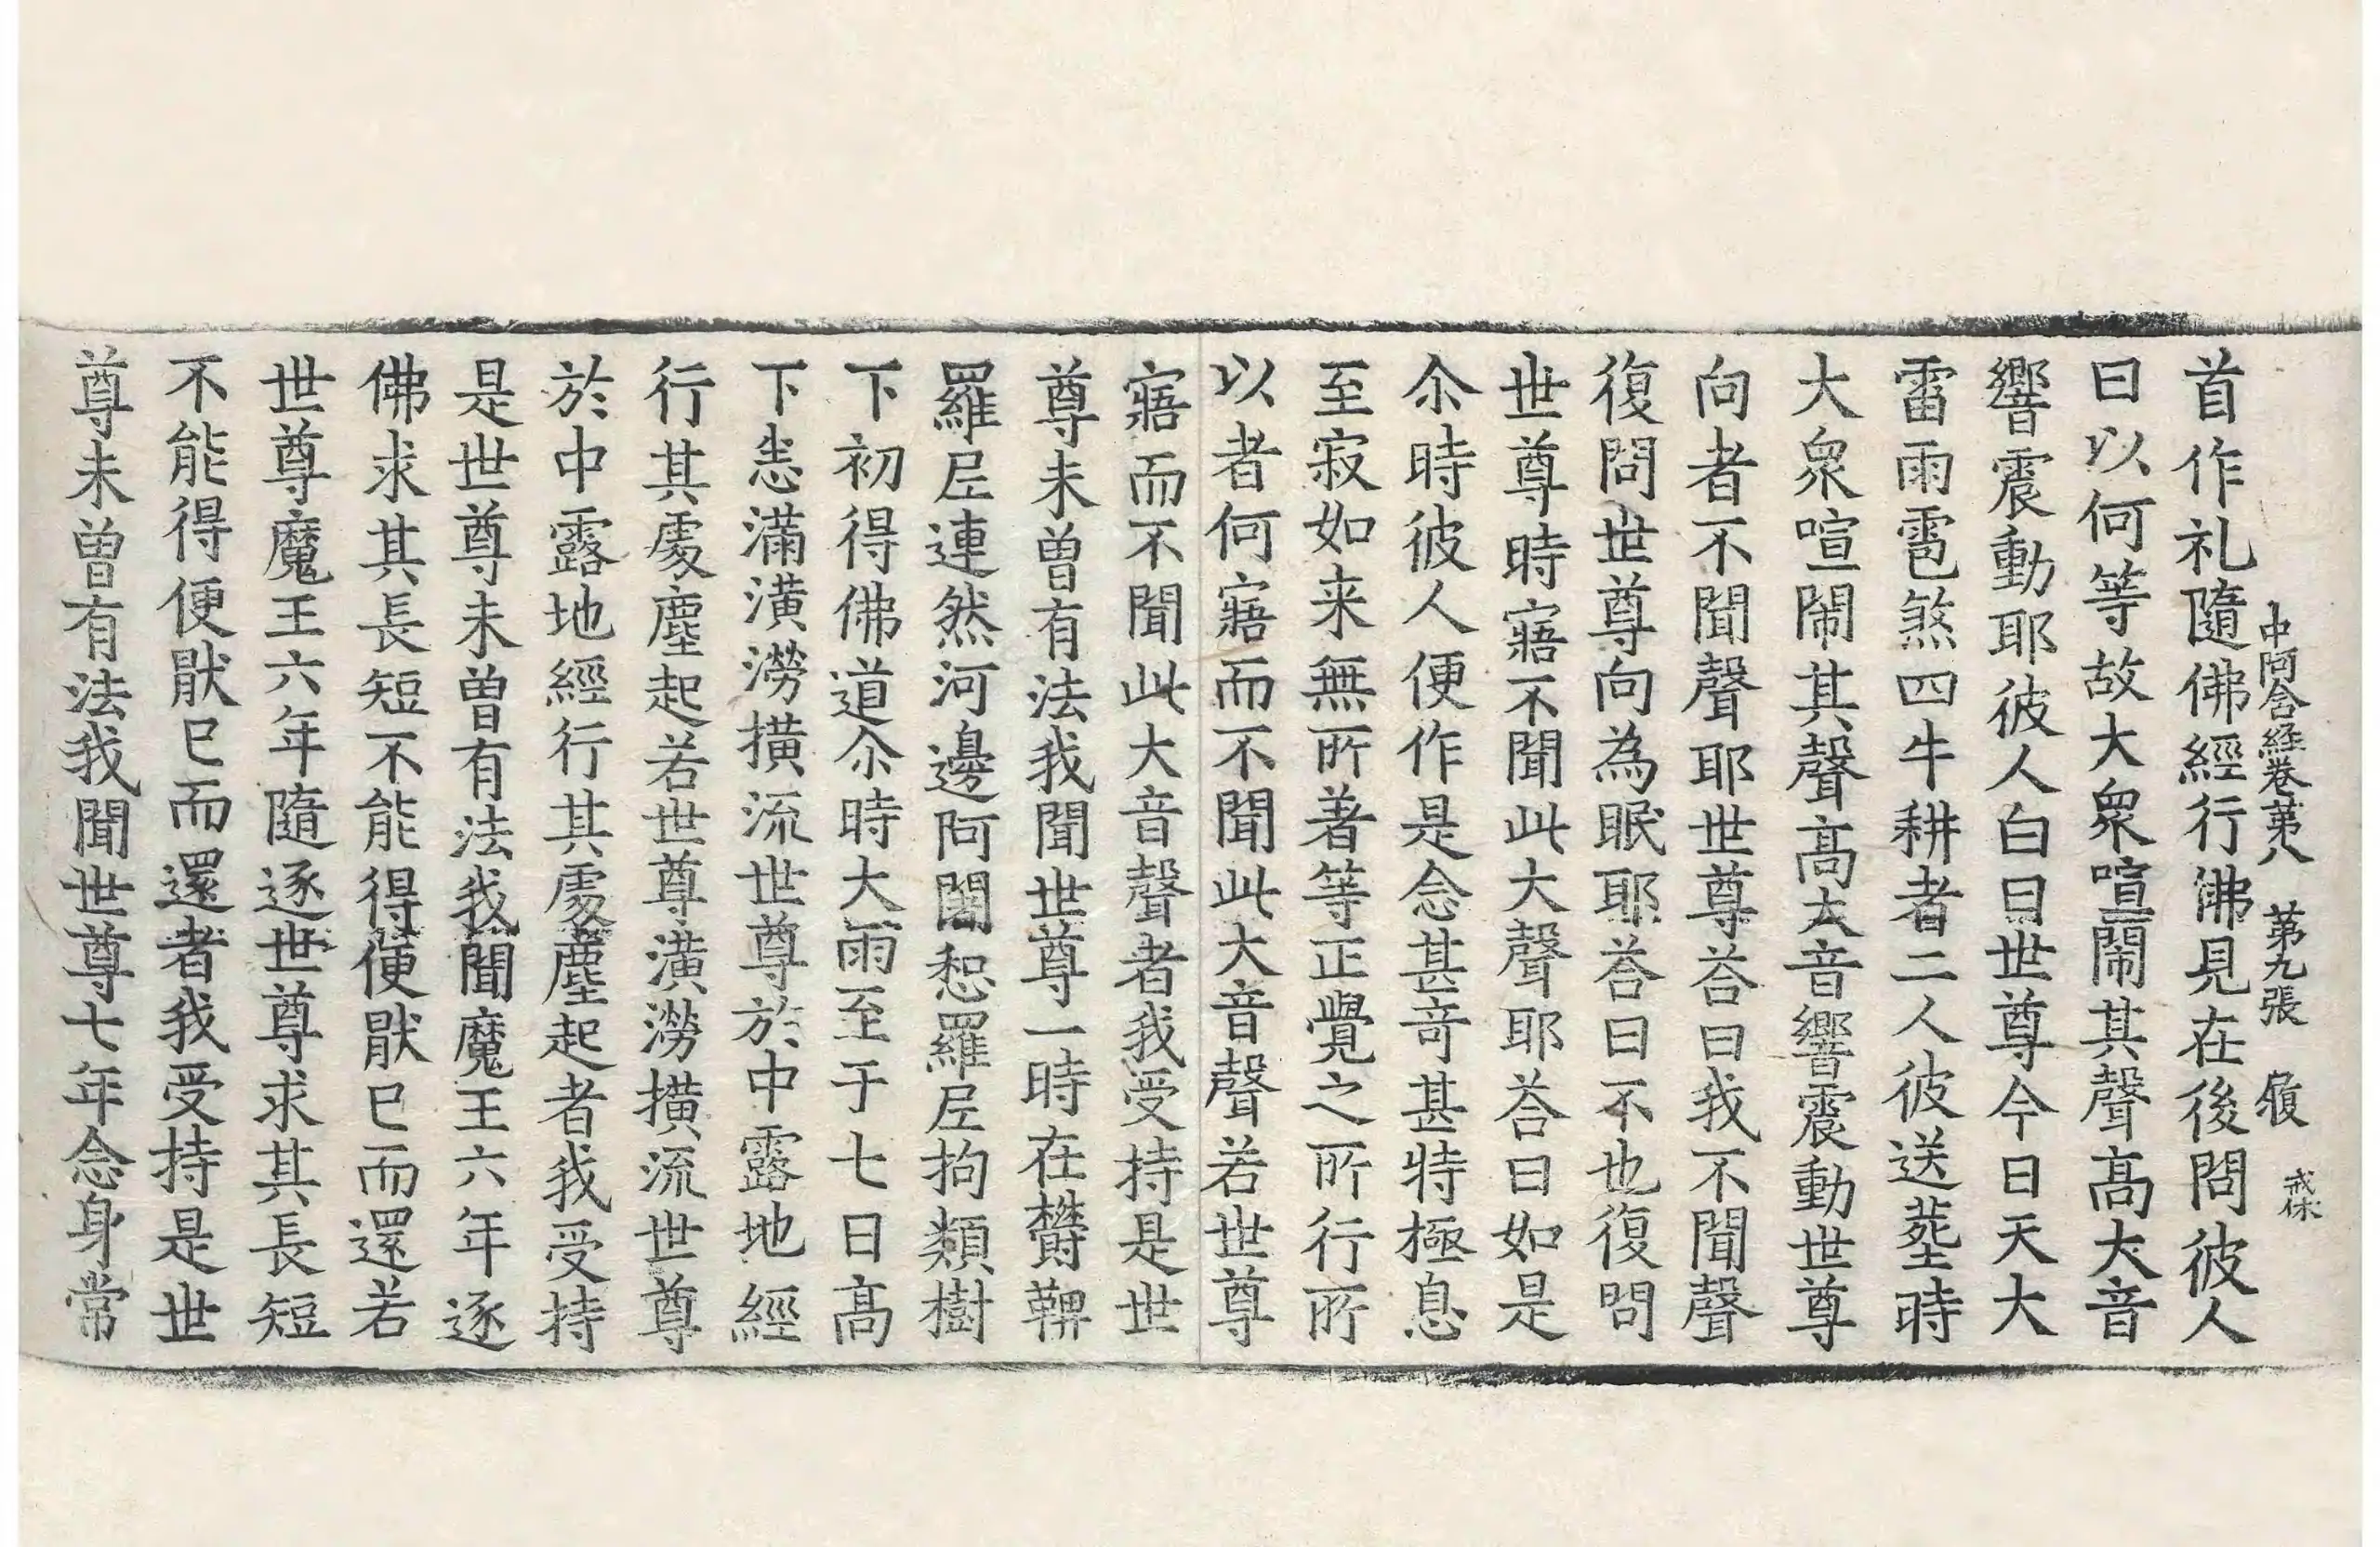 中阿含経卷苐八 苐九張 履 戒保
首作礼隨佛經行佛見在後問彼人
曰以何等故大衆喧鬧其聲髙大音
響震動耶彼人白曰世尊今日天大
雷雨雹煞四牛耕者二人彼送塟時
大衆喧鬧其聲髙大音響震動世尊
向者不聞聲耶世尊荅曰我不聞聲
復問世尊向為眠耶荅曰不也復問
世尊時寤不聞此大聲耶荅曰如是
尒時彼人便作是念甚竒甚特極息
至寂如来無所著等正覺之所行所
以者何寤而不聞此大音聲若世尊
寤而不聞此大音聲者我受持是世
尊未曾有法我聞世尊一時在欝鞞
羅𡰱連然河邊阿闍惒羅𡰱拘類樹
下初得佛道尒時大雨至于七日髙
下悉滿潢澇橫流世尊於中露地經
行其處塵起若世尊潢澇橫流世尊
於中露地經行其處塵起者我受持
是世尊未曾有法我聞魔王六年逐
佛求其長短不能得便猒已而還若
世尊魔王六年隨逐世尊求其長短
不能得便猒已而還者我受持是世
尊未曾有法我聞世尊七年念身常